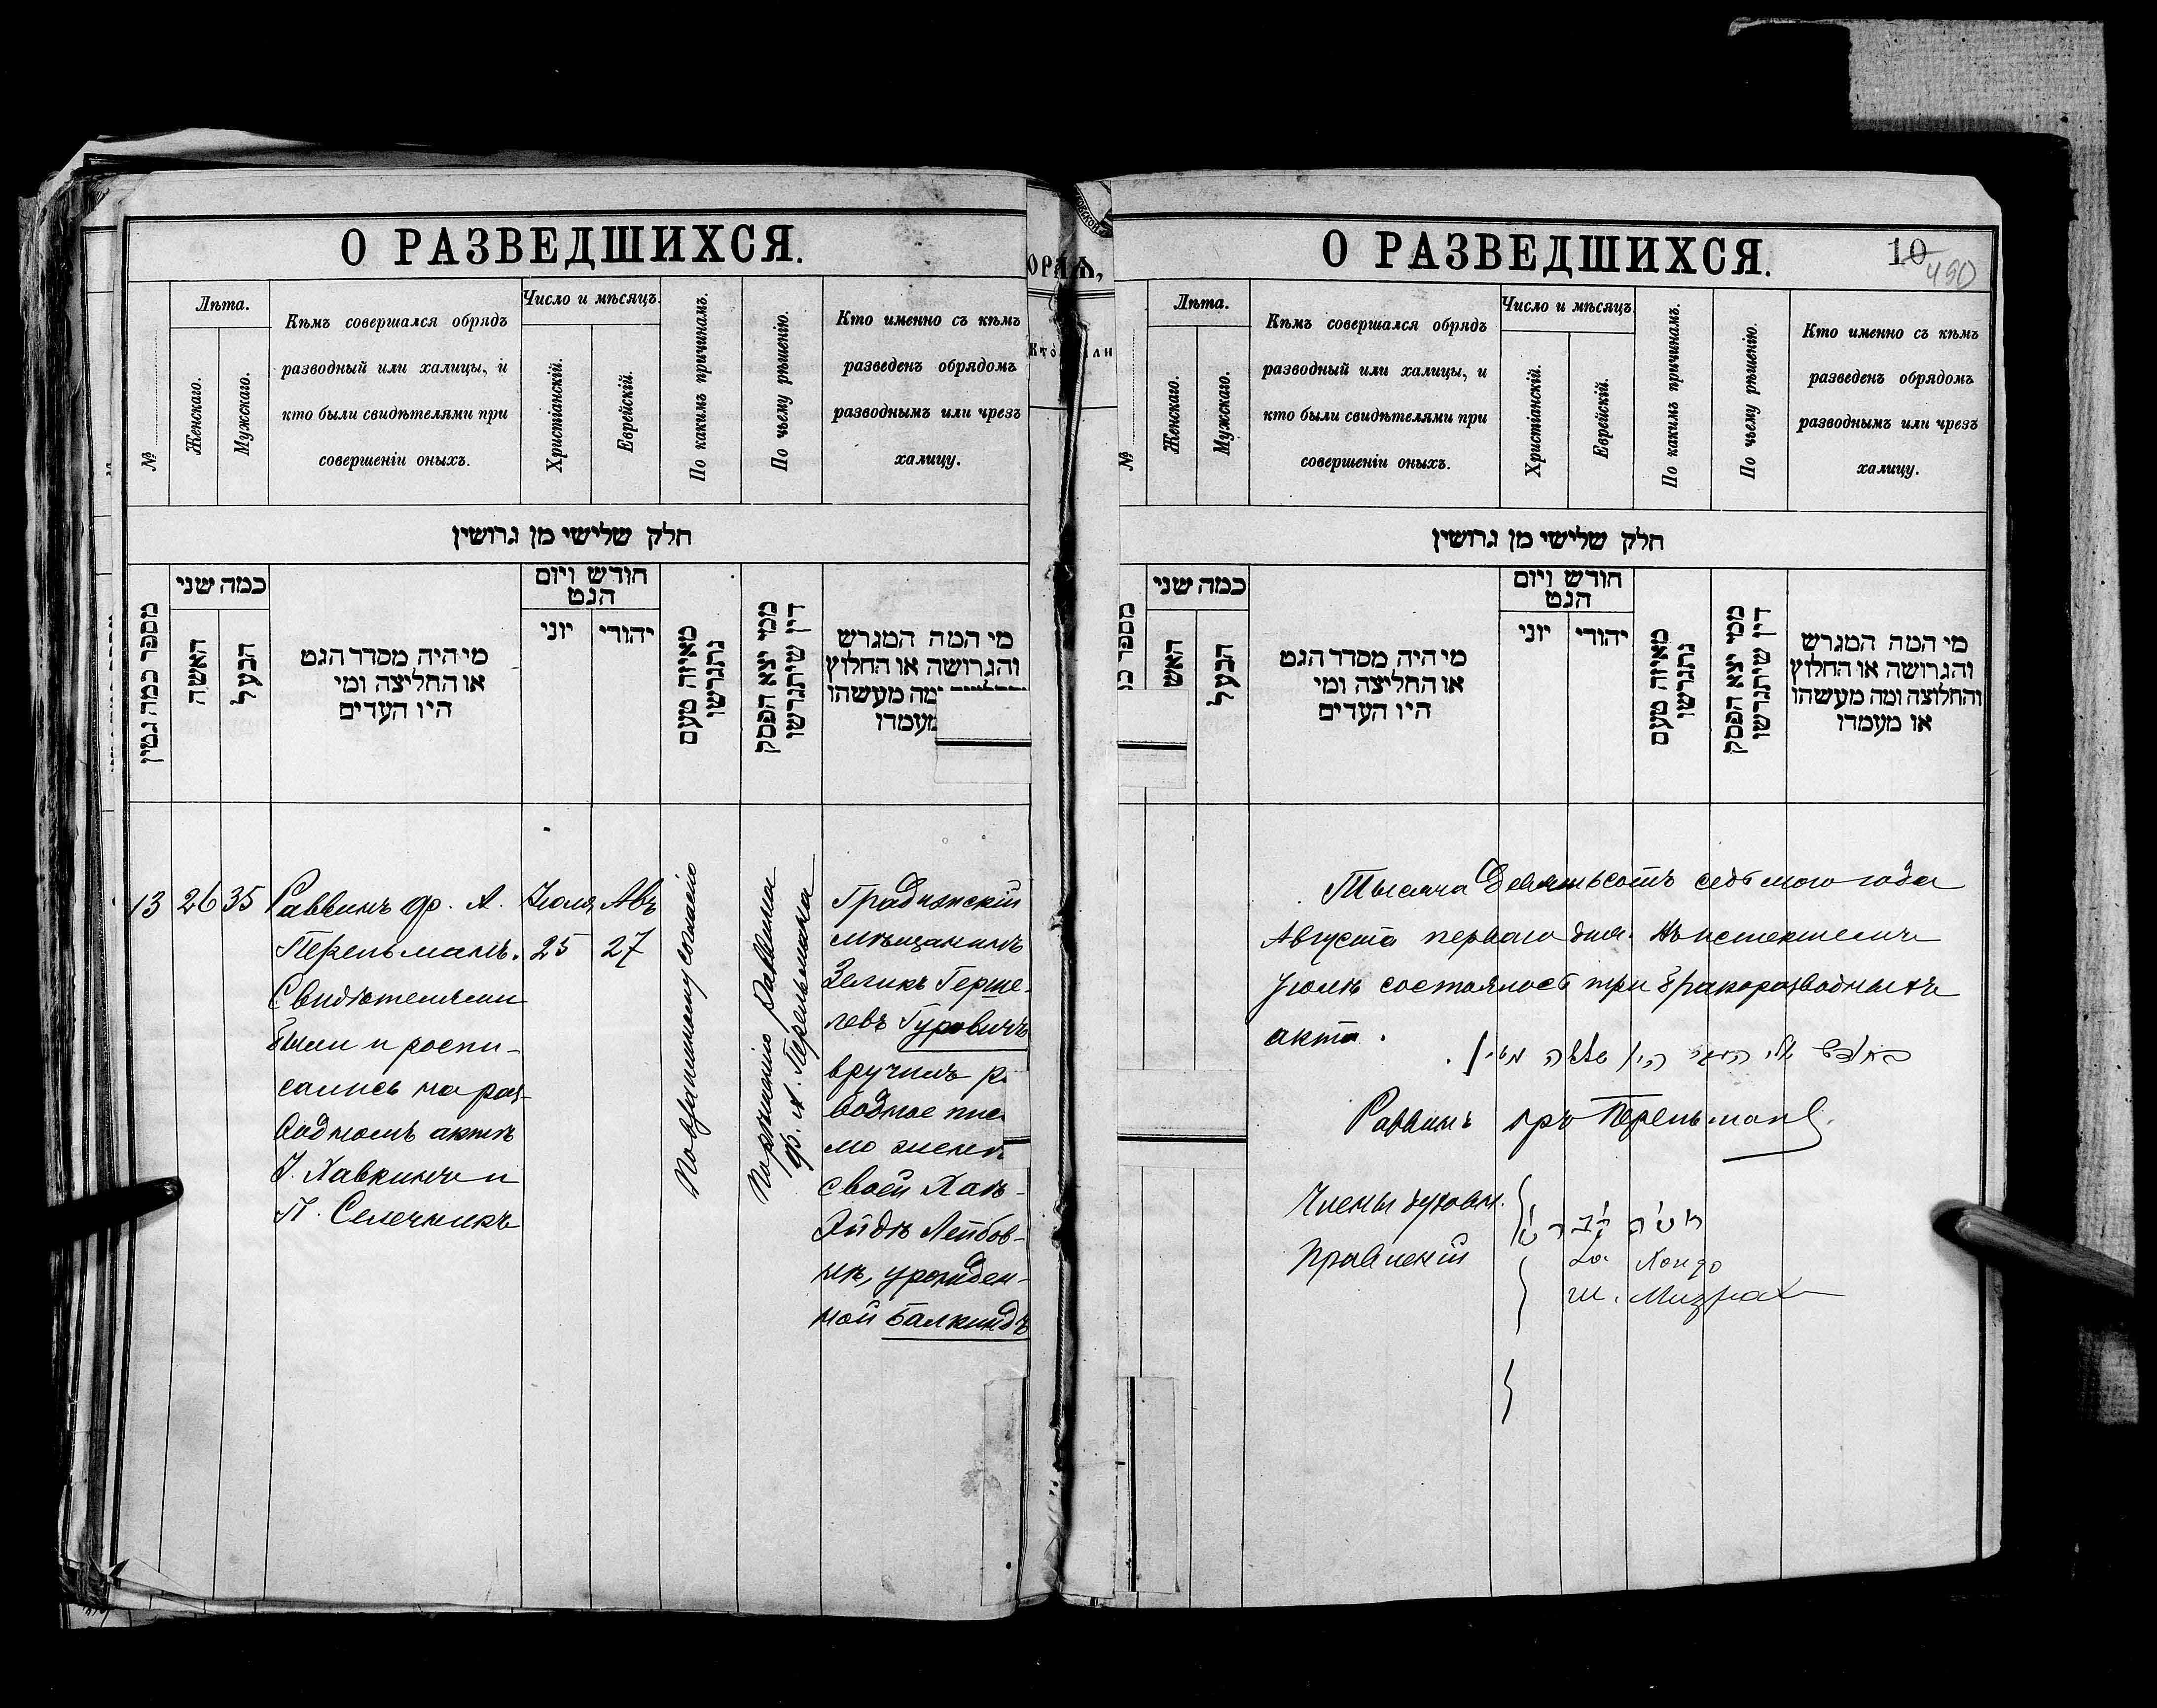 О РАЗВЕДШИХСЯ.
№
Лѣта.
Женскаго.
Мужскаго.
Кѣмъ совершался обрядъ
разводный или халицы, и
кто были свидѣтелями при
совершеніи оныхъ.
Число и мѣсяцъ.
Христіанскій.
Еврейскій.
По какимъ причинамъ.
По чьему рѣшенію.
Кто именно съ кѣмъ
разведенъ обрядомъ
разводнымъ или чрезъ
халицу.
חלק שלישי מן גרושין
מספר כמה גטין
כמה שני
האשה
הבעל
מי היה מסדר הגט
או החליצה ומי
היו העדים
חודש ויום
הגט
יוני
יהודי
מאיזה טעם
נתגרשו
ממי יצא הפסק
דין שיתגרשו
מי המה המגרש
והגרושה או החלוץ
ומה מעשהו
מעמדו
13
26
35
Раввинъ Ф. А.
Перельманъ.
Свидѣтелями
были и роспи-
сались на раз-
водномъ актѣ
І. Хавкинъ и
П. Селечникъ
Іюля
25
Авъ
27
По взаимному согласію
По рѣшенію раввина
Ф. А. Перельмана
Градижскій
мѣщанинъ
Зеликъ Герше-
левъ Гуровичъ
вручилъ
водное
мо женѣ
своей Ханѣ-
Эйдѣ Лейбов-
нѣ, урожден-
ной Балкиндъ
О РАЗВЕДШИХСЯ.
10
490
№
Лѣта.
Женскаго.
Мужскаго.
Кѣмъ совершался обрядъ
разводный или халицы, и
кто были свидѣтелями при
совершеніи оныхъ.
Число и мѣсяцъ.
Христіанскій.
Еврейскій.
По какимъ причинамъ.
По чьему рѣшенію.
Кто именно съ кѣмъ
разведенъ обрядомъ
разводнымъ или чрезъ
халицу.
חלק שלישי מן גרושין
מספר
כמה שני
האש
הבעל
מי היה מסדר הגט
או החליצה ומי
היו העדים
חודש ויום
הגט
יוני
יהודי
מאיזה טעם
נתגרשו
ממי יצא הפסק
דין שיתגרשו
מי המה המגרש
והגרושה או החלוץ
והחלוצה ומה מעשהו
או מעמדו
Тысяча девятьсотъ седьмого года
Августа перваго дня. Въ истекшемъ
Іюлѣ состоялось три бракоразводныхъ
акта.
היו שלשה גטין.
Раввинъ Перельманъ
Члены духовн.
Правленій
Хондо
Ш. Мизрах